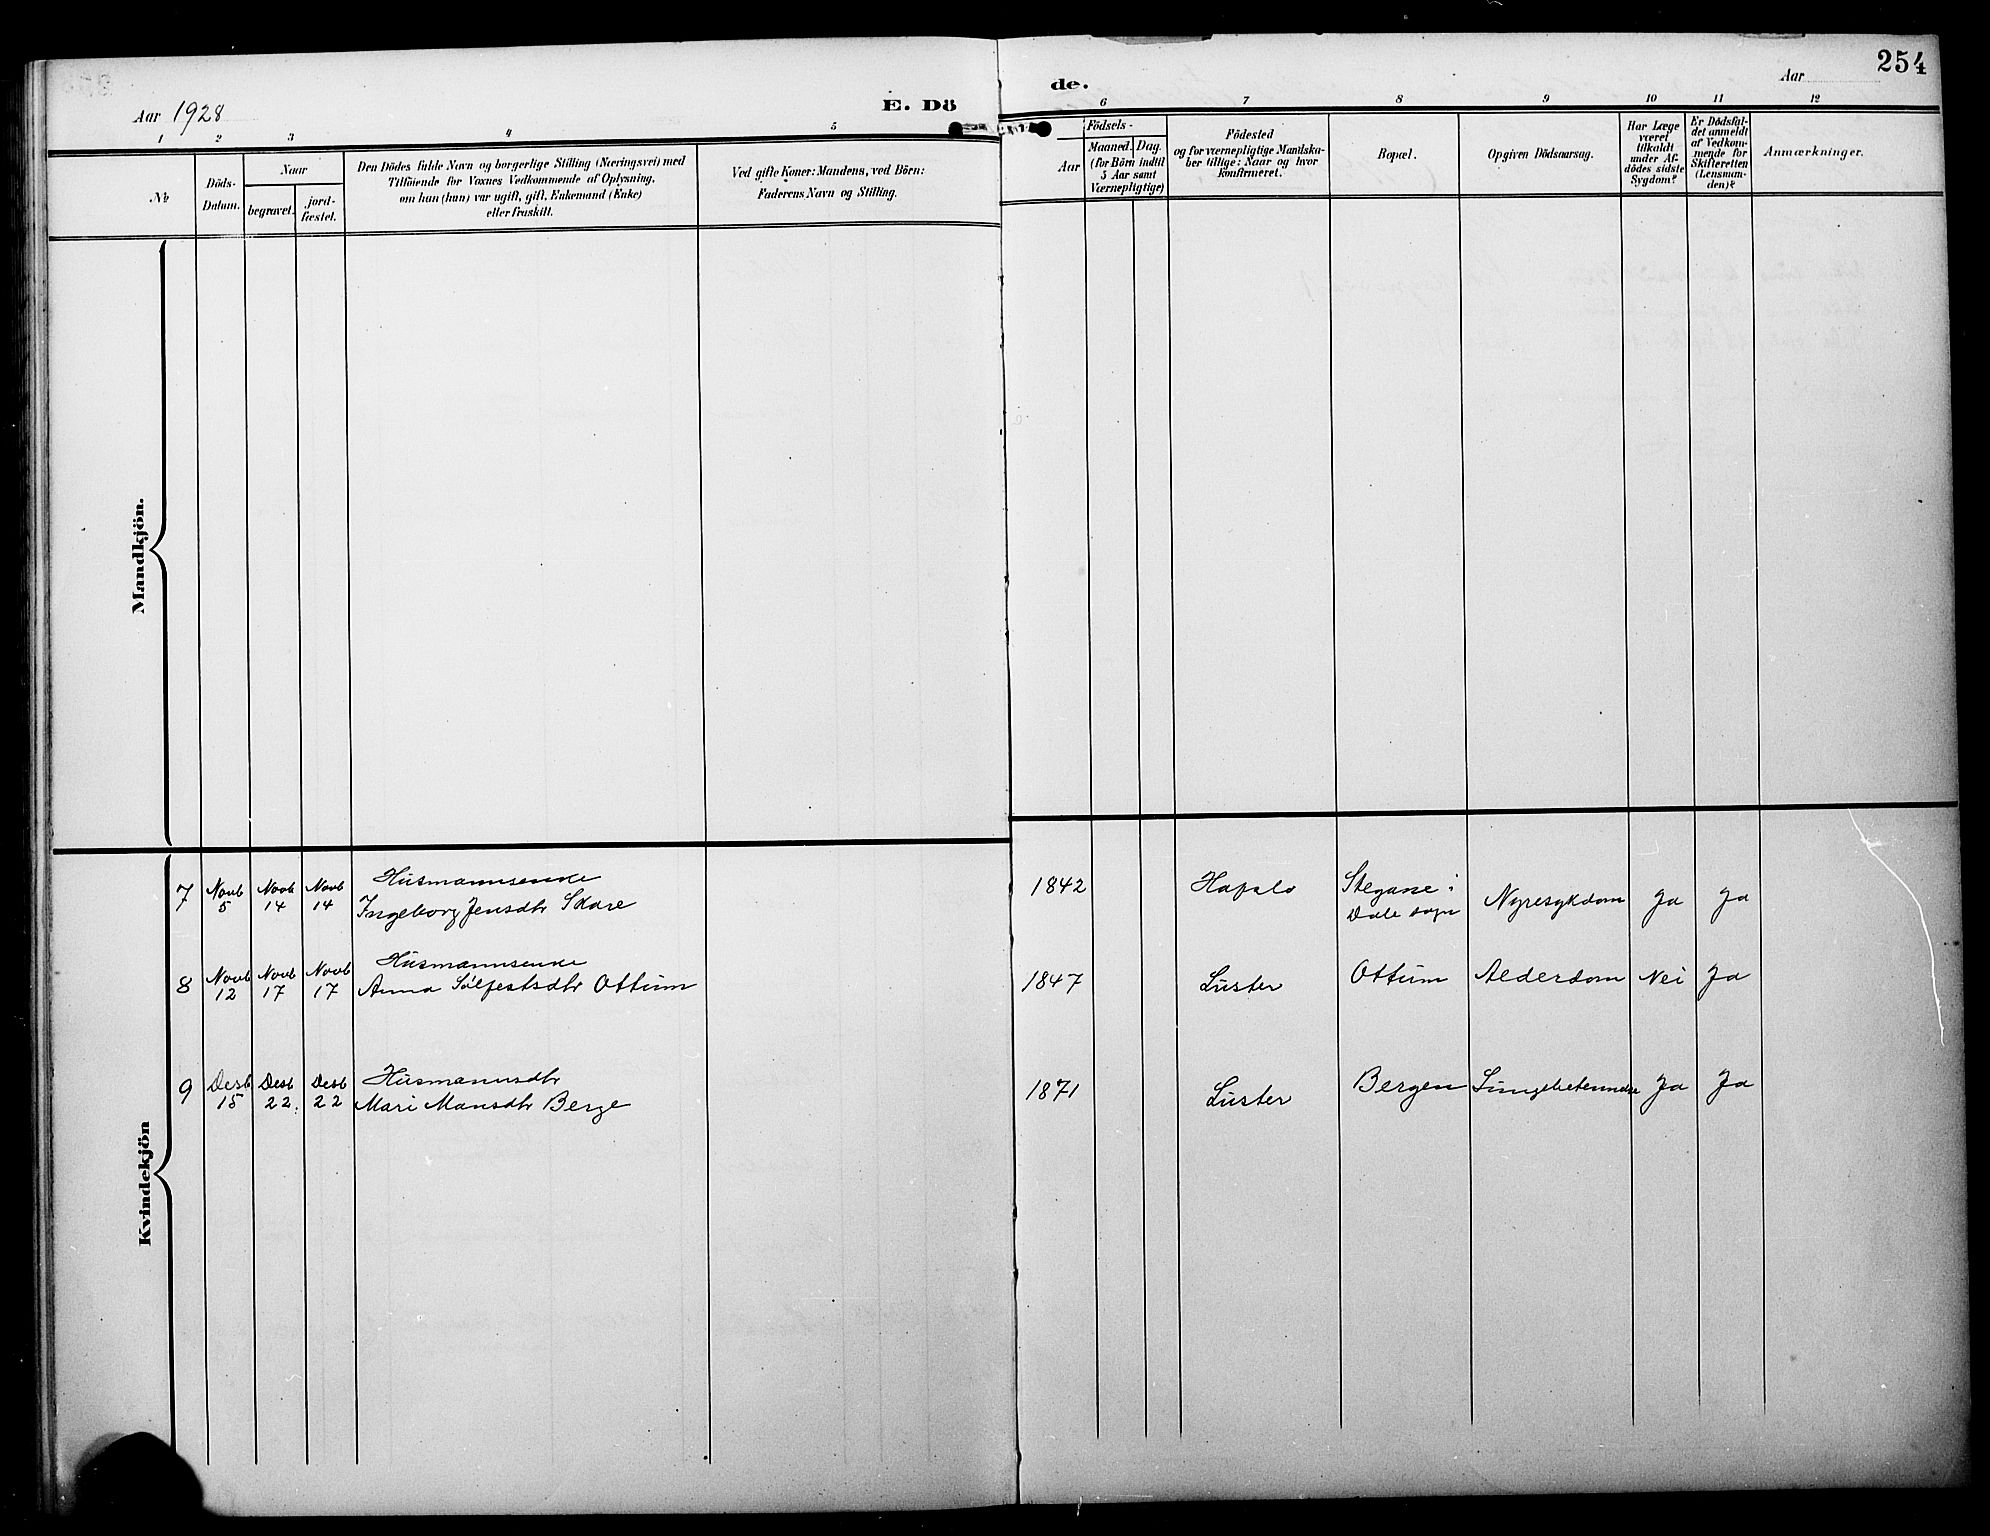 254
Aar 1928
E. Dö
de.
Aar
1 2 3 4 5 6 7 8 9 10 11 12
No
Döds-
Datum.
Naar
begravet.
jord-
fæstet.
Den Dödes fulde Navn og borgerlige Stilling (Næringsvei) med
Tilföiende for Voxnes Vedkommende af Oplysning,
om han (hun) var ugift, gift, Enkemand (Enke)
eller fraskilt.
Ved gifte Koner: Mandens, ved Börn:
Faderens Navn og Stilling.
Födsels-
Aar
Maaned. Dag.
(for Börn indtil
5 Aar samt
Værnepligtige)
Födested
og for værnepligtige Mandska-
ber tillige: Naar og hvor
konfirmeret.
Bopæl.
Opgiven Dödsaarsag.
Har Læge
været
tilkaldt
under Af-
dödes sidste
Sygdom?
Er Dödsfal-
det anmeldt
af Vedkom-
mende for
Skifteretten
(Lensman-
den)?
Anmærkninger.
Mandkjön.
Kvindekjön
Husmannsenke
7 Novb 5 Novb 14 Novb 14 Ingeborg Jensdtr Skare 1842 Hafslo Stegane i
Dale sogn Nyresykdom Ja Ja
Husmannsenke
8 Novb 12 Novb 17 Novb 17 Anna Sölfestsdtr Ottum 1847 Luster Ottum Alderdom Nei Ja
Husmannsdtr
9 Desb 15 Desb 22. Desb 22 Mari Monsdtr Berge 1871 Luster Bergen Lungebetendelse Ja Ja